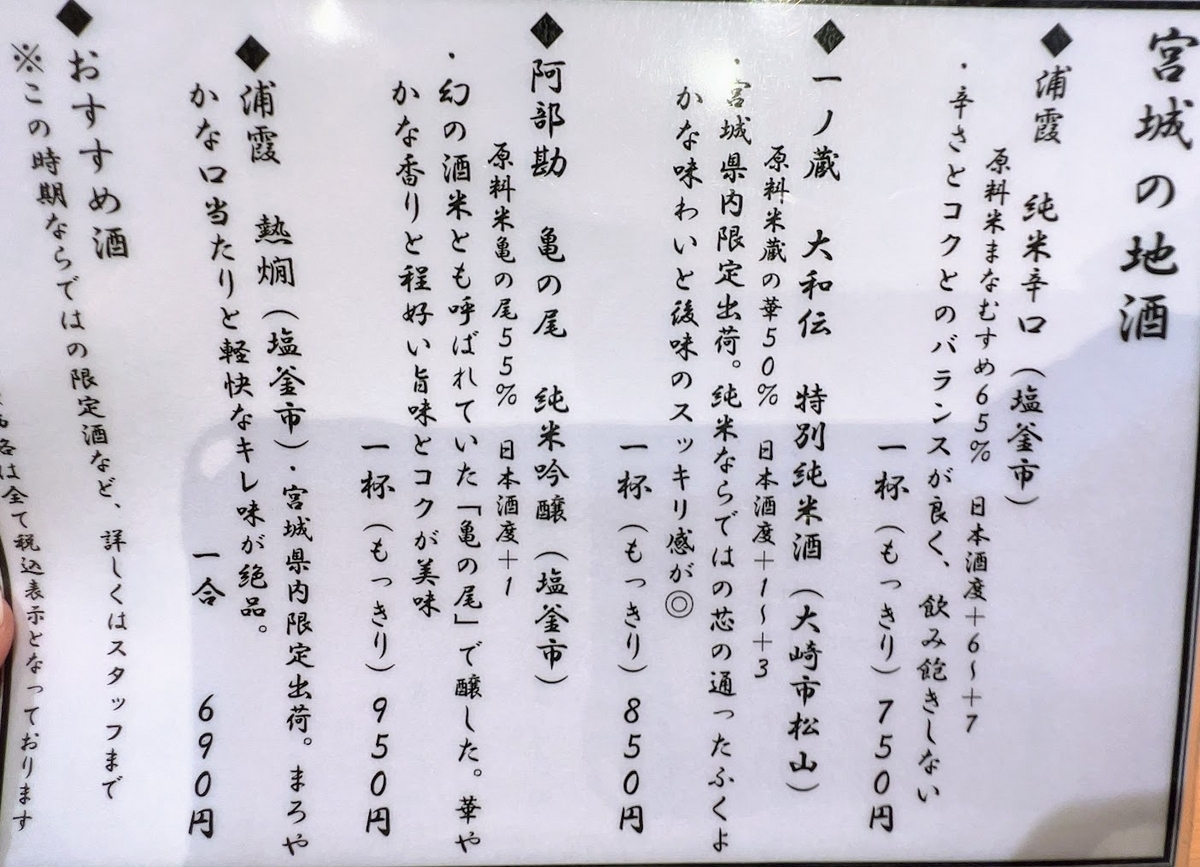 宮城の地酒
◆浦霞 純米辛口（塩釜市）
原料米まなむすめ65% 日本酒度＋6〜＋7
・辛さとコクとのバランスが良く、飲み飽きしない
一杯（もっきり）750円
◆一ノ蔵 大和伝 特別純米酒（大崎市松山）
原料米蔵の華50% 日本酒度＋1〜＋3
・宮城県内限定出荷。純米ならではの芯の通ったふくよ
かな味わいと後味のスッキリ感が◎
一杯（もっきり）850円
◆阿部勘 亀の尾 純米吟醸（塩釜市）
原料米亀の尾55% 日本酒度＋1
・幻の酒米とも呼ばれていた「亀の尾」で醸した。華や
かな香りと程好い旨味とコクが美味
一杯（もっきり）950円
◆浦霞 熱燗（塩釜市）・宮城県内限定出荷。まろや
かな口当たりと軽快なキレ味が絶品。
一合 690円
◆おすすめ酒
※この時期ならではの限定酒など、詳しくはスタッフまで
格は全て税込表示となっております